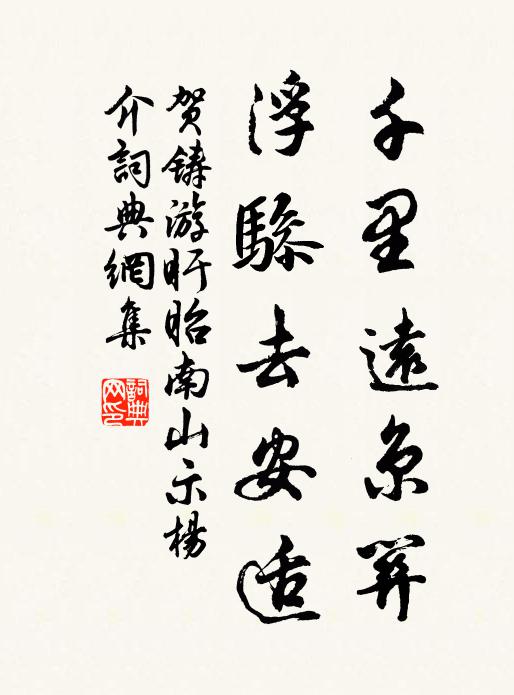 千里遠京
浮驂去安适
賀鑄游盱眙南山示楊
介詞典網集
詞典
网印